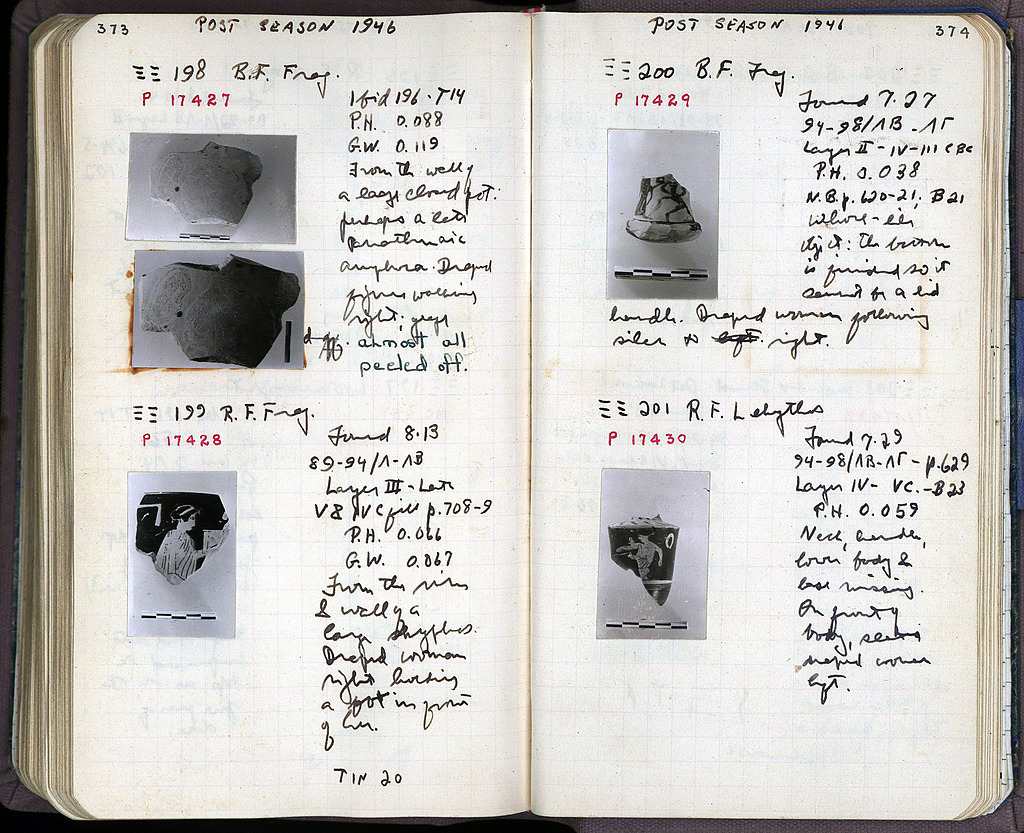 373 POST SEASON 1946
ΞΞ 198 B.F. Frag.
P 17427
196 - T14
P.H. 0.088
G.W. 0.119
From the wall of
a large closed pot:
perhaps a late
Panathenaic
amphora. Draped
figures walking
right; glaze
almost all
peeled off.
ΞΞ 199 R.F. Frag.
P 17428
Found 8.13
89-94/Λ-ΛΒ
Layer III - Late
V & IVC fill p.708-9
P.H. 0.066
G.W. 0.067
From the rim
& wall of a
large skyphos.
Draped woman
right holding
a pot in front
of her.
TIN 20
POST SEASON 1946 374
ΞΞ 200 B.F. Frag.
P 17429
Found 7.27
94-98/ΛΒ-ΛΓ
Layer II - IV-III C BC
P.H. 0.038
N.B. p. 620-21, B21
Whorl-like
object: the bottom
is finished so it
cannot be a lid
handle. Draped woman following
silen to right.
ΞΞ 201 R.F. Lekythos
P 17430
Found 7.29
94-98/ΛΒ-ΛΓ - p.629
Layer IV - VC. - B23
P.H. 0.059
Neck, handle,
lower body &
base missing.
On front of
body, seems
draped woman
left.